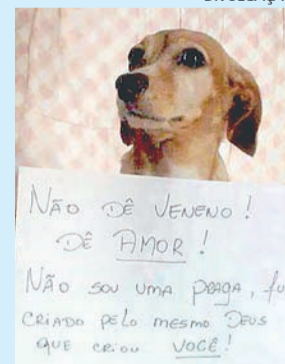 NÃO DÊ VENENO!
DÊ AMOR!
NÃO SOU UMA PRAGA, fu
CRIADO PELO MESMO DEUS
QUE CRIOU VOCÊ!